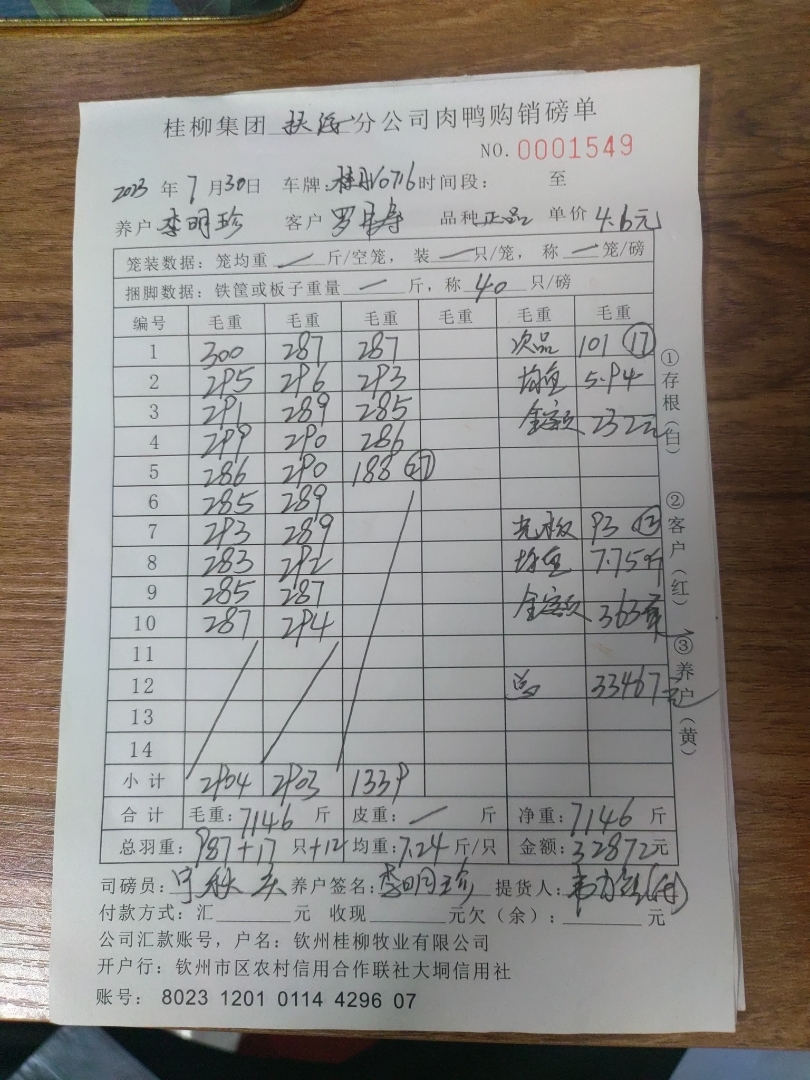 桂柳集团 分公司肉鸭购销磅单
NO. 0001549
2023 年 7 月 30 日 车牌: 0716 时间段: 至
养户 李明珍 客户 罗 寿 品种 正品 单价 4.6元
笼装数据: 笼均重 一 斤/空笼, 装 一 只/笼, 称 一 笼/磅
捆脚数据: 铁筐或板子重量 一 斤, 称 40 只/磅
编号 毛重 毛重 毛重 毛重 毛重 毛重
1 300 287 287 次品 101 ⑰
2 295 296 293 均重 5.94
3 291 289 285 金额 232元
4 299 290 286
5 286 290 188 ㉗
6 285 289
7 293 289 93 ⑫
8 283 292 均重 7.75斤
9 285 287 金额 363元
10 287 294
11
12 总 33467元
13
14
小计 2904 2903 1339
合计 毛重: 7146 斤 皮重: 一 斤 净重: 7146 斤
总羽重: 987+17 只+12 均重: 7.24 斤/只 金额: 32872 元
司磅员: 养户签名: 李明珍 提货人:
付款方式: 汇 元 收现 元欠(余): 元
公司汇款账号, 户名: 钦州桂柳牧业有限公司
开户行: 钦州市区农村信用合作联社大垌信用社
账号: 8023 1201 0114 4296 07
①存根(白)
②客户(红)
③养户(黄)